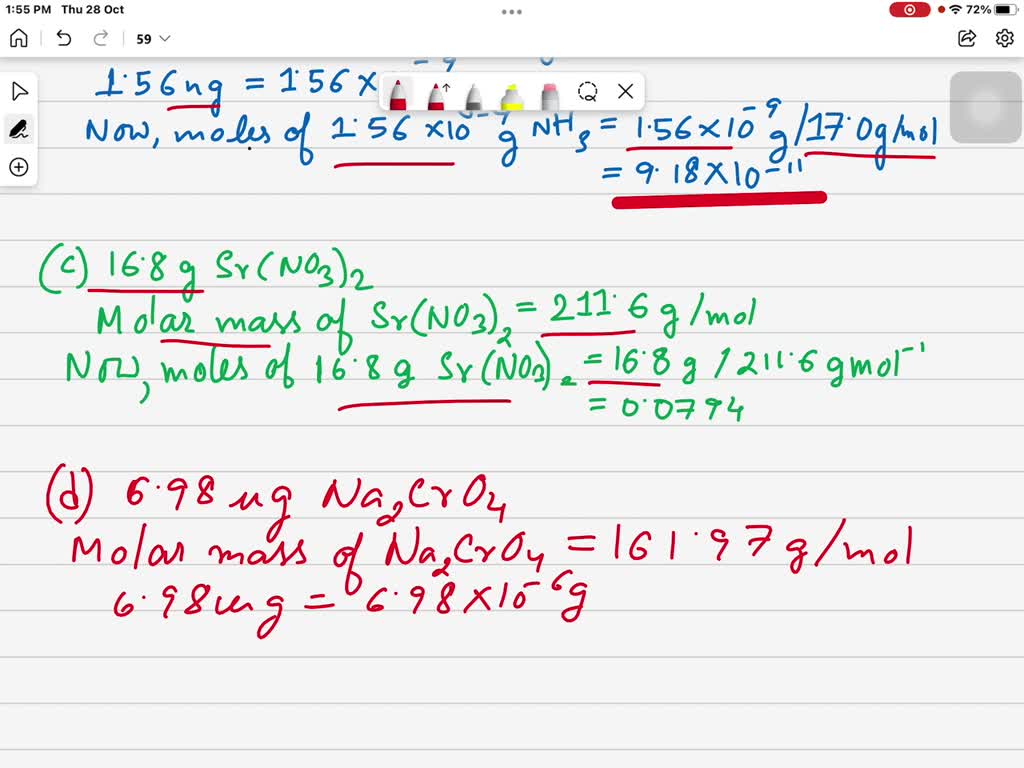 1:55 PM Thu 28 Oct
72%
59
1.56ng = 1.56×
Now, moles of 1.56 ×10⁻⁹g NH₃ = 1.56×10⁻⁹g/17.0g/mol
= 9.18×10⁻¹¹
(c) 16.8 g Sr(NO₃)₂
Molar mass of Sr(NO₃)₂ = 211.6 g/mol
Now, moles of 16.8 g Sr(NO₃)₂ = 16.8 g / 211.6 gmol⁻¹
= 0.0794
(d) 6.98 ug Na₂CrO₄
Molar mass of Na₂CrO₄ = 161.97 g/mol
6.98ug = 6.98×10⁻⁶g